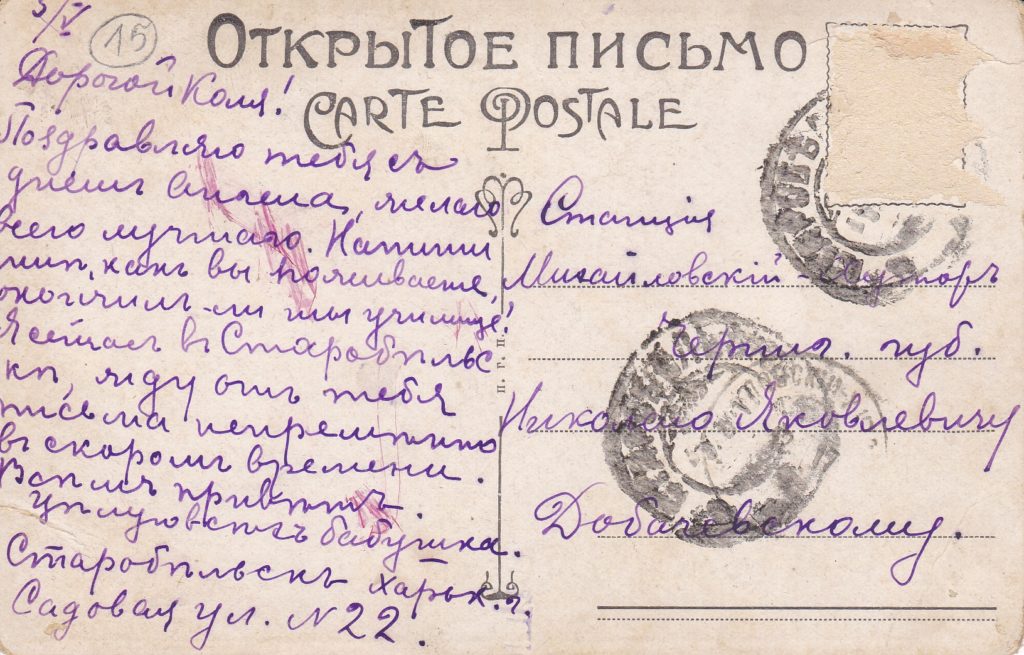 5/V
15
ОТКРЫТОЕ ПИСЬМО
CARTE POSTALE
Дорогой Коля!
Поздравляю тебя съ
днемъ Ангела, желаю
всего лучшаго. Напиши
мнѣ, какъ вы поживаете,
окончилъ-ли ты училище!
Я сейчасъ въ Старобѣльс
кѣ, жду отъ тебя
письма непремѣнно
въ скоромъ времени.
Всѣмъ привѣтъ.
бабушка.
Старобѣльскъ Харьк. г.
Садовая ул. N 22.
П. Г. П.
Станція
Михайловскій-Хуторъ
Черниг. губ.
Николаю Яковлевичу
Добачевскому.